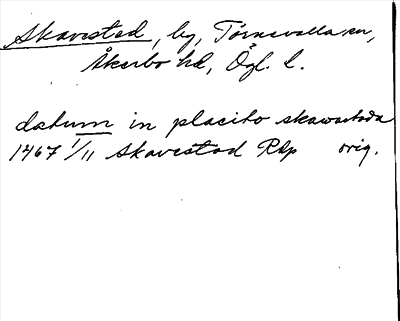 Skavestad, by, Törnevalla sn,
Åkerbo hd, Ögl. l.
datum in placito skawastada
1467 1/11 Skavestad Rkp orig.